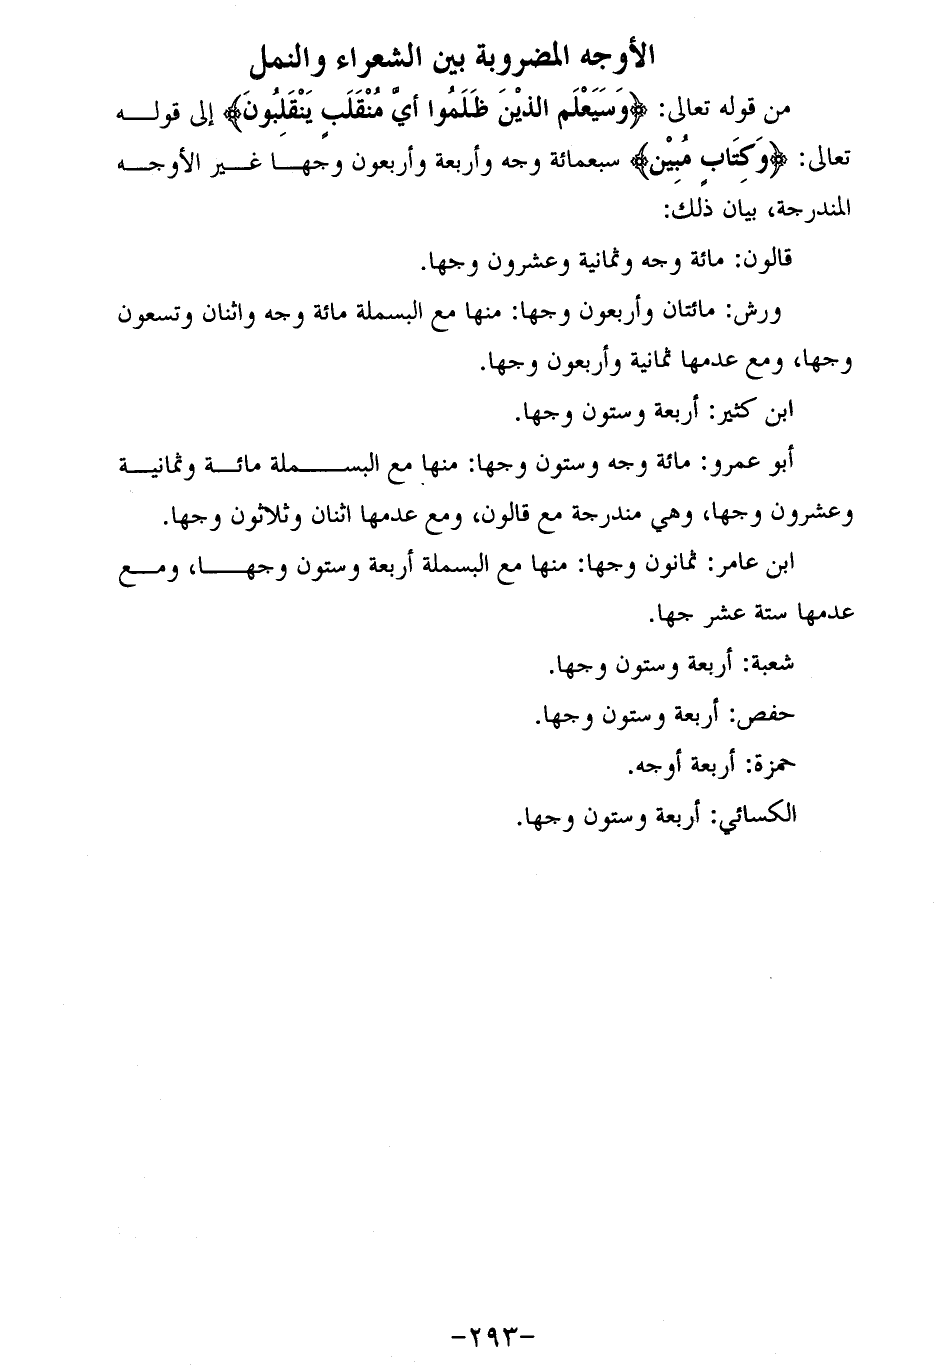 الأوجه المضروبة بين الشعراء والنمل
من قوله تعالى: ﴿وَسَيَعْلَم الذيْنَ ظَلَمُوا أيَّ مُنْقَلَبٍ يَنْقَلِبُونَ﴾ إلى قولـــه
تعالى: ﴿وَكِتَابٍ مُبِيْن﴾ سبعمائة وجه وأربعة وأربعون وجهـا غـير الأوجـه
المندرجة، بيان ذلك:
قالون: مائة وجه وثمانية وعشرون وجها.
ورش: مائتان وأربعون وجها: منها مع البسملة مائة وجه واثنان وتسعون
وجها، ومع عدمها ثمانية وأربعون وجها.
ابن كثير: أربعة وستون وجها.
أبو عمرو: مائة وجه وستون وجها: منها مع البســـملة مائـة وثمانيـة
وعشرون وجها، وهي مندرجة مع قالون، ومع عدمها اثنان وثلاثون وجها.
ابن عامر: ثمانون وجها: منها مع البسملة أربعة وستون وجهـــا، ومـع
عدمها ستة عشر جها.
شعبة: أربعة وستون وجها.
حفص: أربعة وستون وجها.
حمزة: أربعة أوجه.
الكسائي: أربعة وستون وجها.
-٢٩٣-